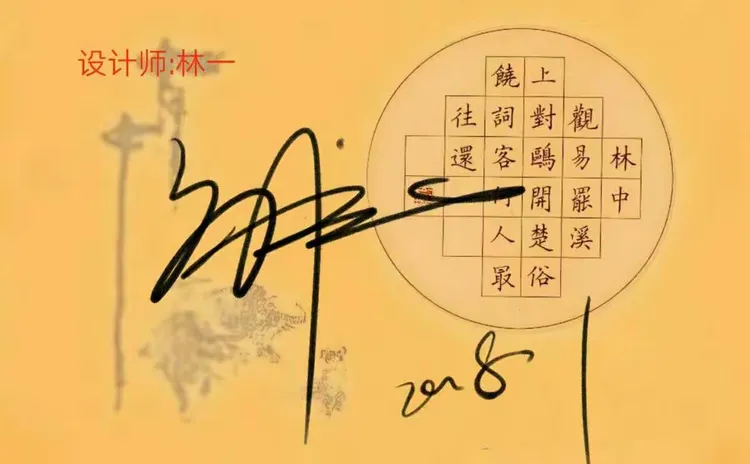 设计师:林一
林中
觀易罷溪
上對鷗開楚俗
饒詞客何人冣
往還
2018